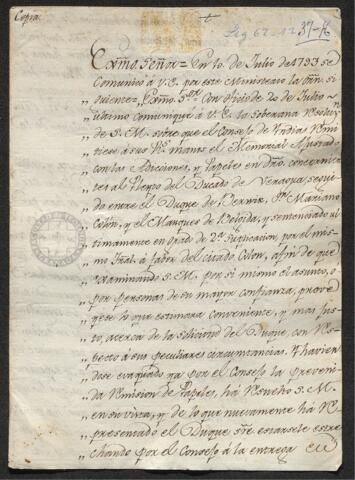 Copia.
Leg 67-12 37-R
Exmo. Señor = En 10 de Julio de 1793 se
Comunicó á V.E. por este Ministerio la Orñ. si
„ guiente = Exmo. Sor. Con Oficio de 20 de Julio
„ ultimo comuniqué á V.E. la soberana Resoluz.n
„ de S.M. sobre que el Consejo de Yndias Remi
„ tiese á sus Rs. manos el Memorial Ajustado
„ con las Adiciones, y Papeles en Dro. concernien
„ tes al Pleyto del Ducado de Veragua, segui
„ do entre el Duque de Berwik, Dn. Mariano
„ Colón, y el Marques de Belgida, y sentenciado ul
„ timamente en grado de 2a. Suplicacion, por el mis
„ mo Tral. á favor del citado Colon, afin de que
„ examinando S.M. por si mismo el asunto, o
„ por personas de su mayor confianza, prove
„ yese lo que estimara conveniente, y mas jus
„ to, acerca de la solicitud del Duque, con Res
„ pecto á sus peculiares circunstancias. Y havien
„ dose evaquado ya por el Consejo la preveni
„ da Remision de Papeles, há Resuelto S.M.
„ en su vista, y de lo que nuevamente há Re
„ presentado el Duque sre. estarsele estre
„ chando por el Consejo á la entrega